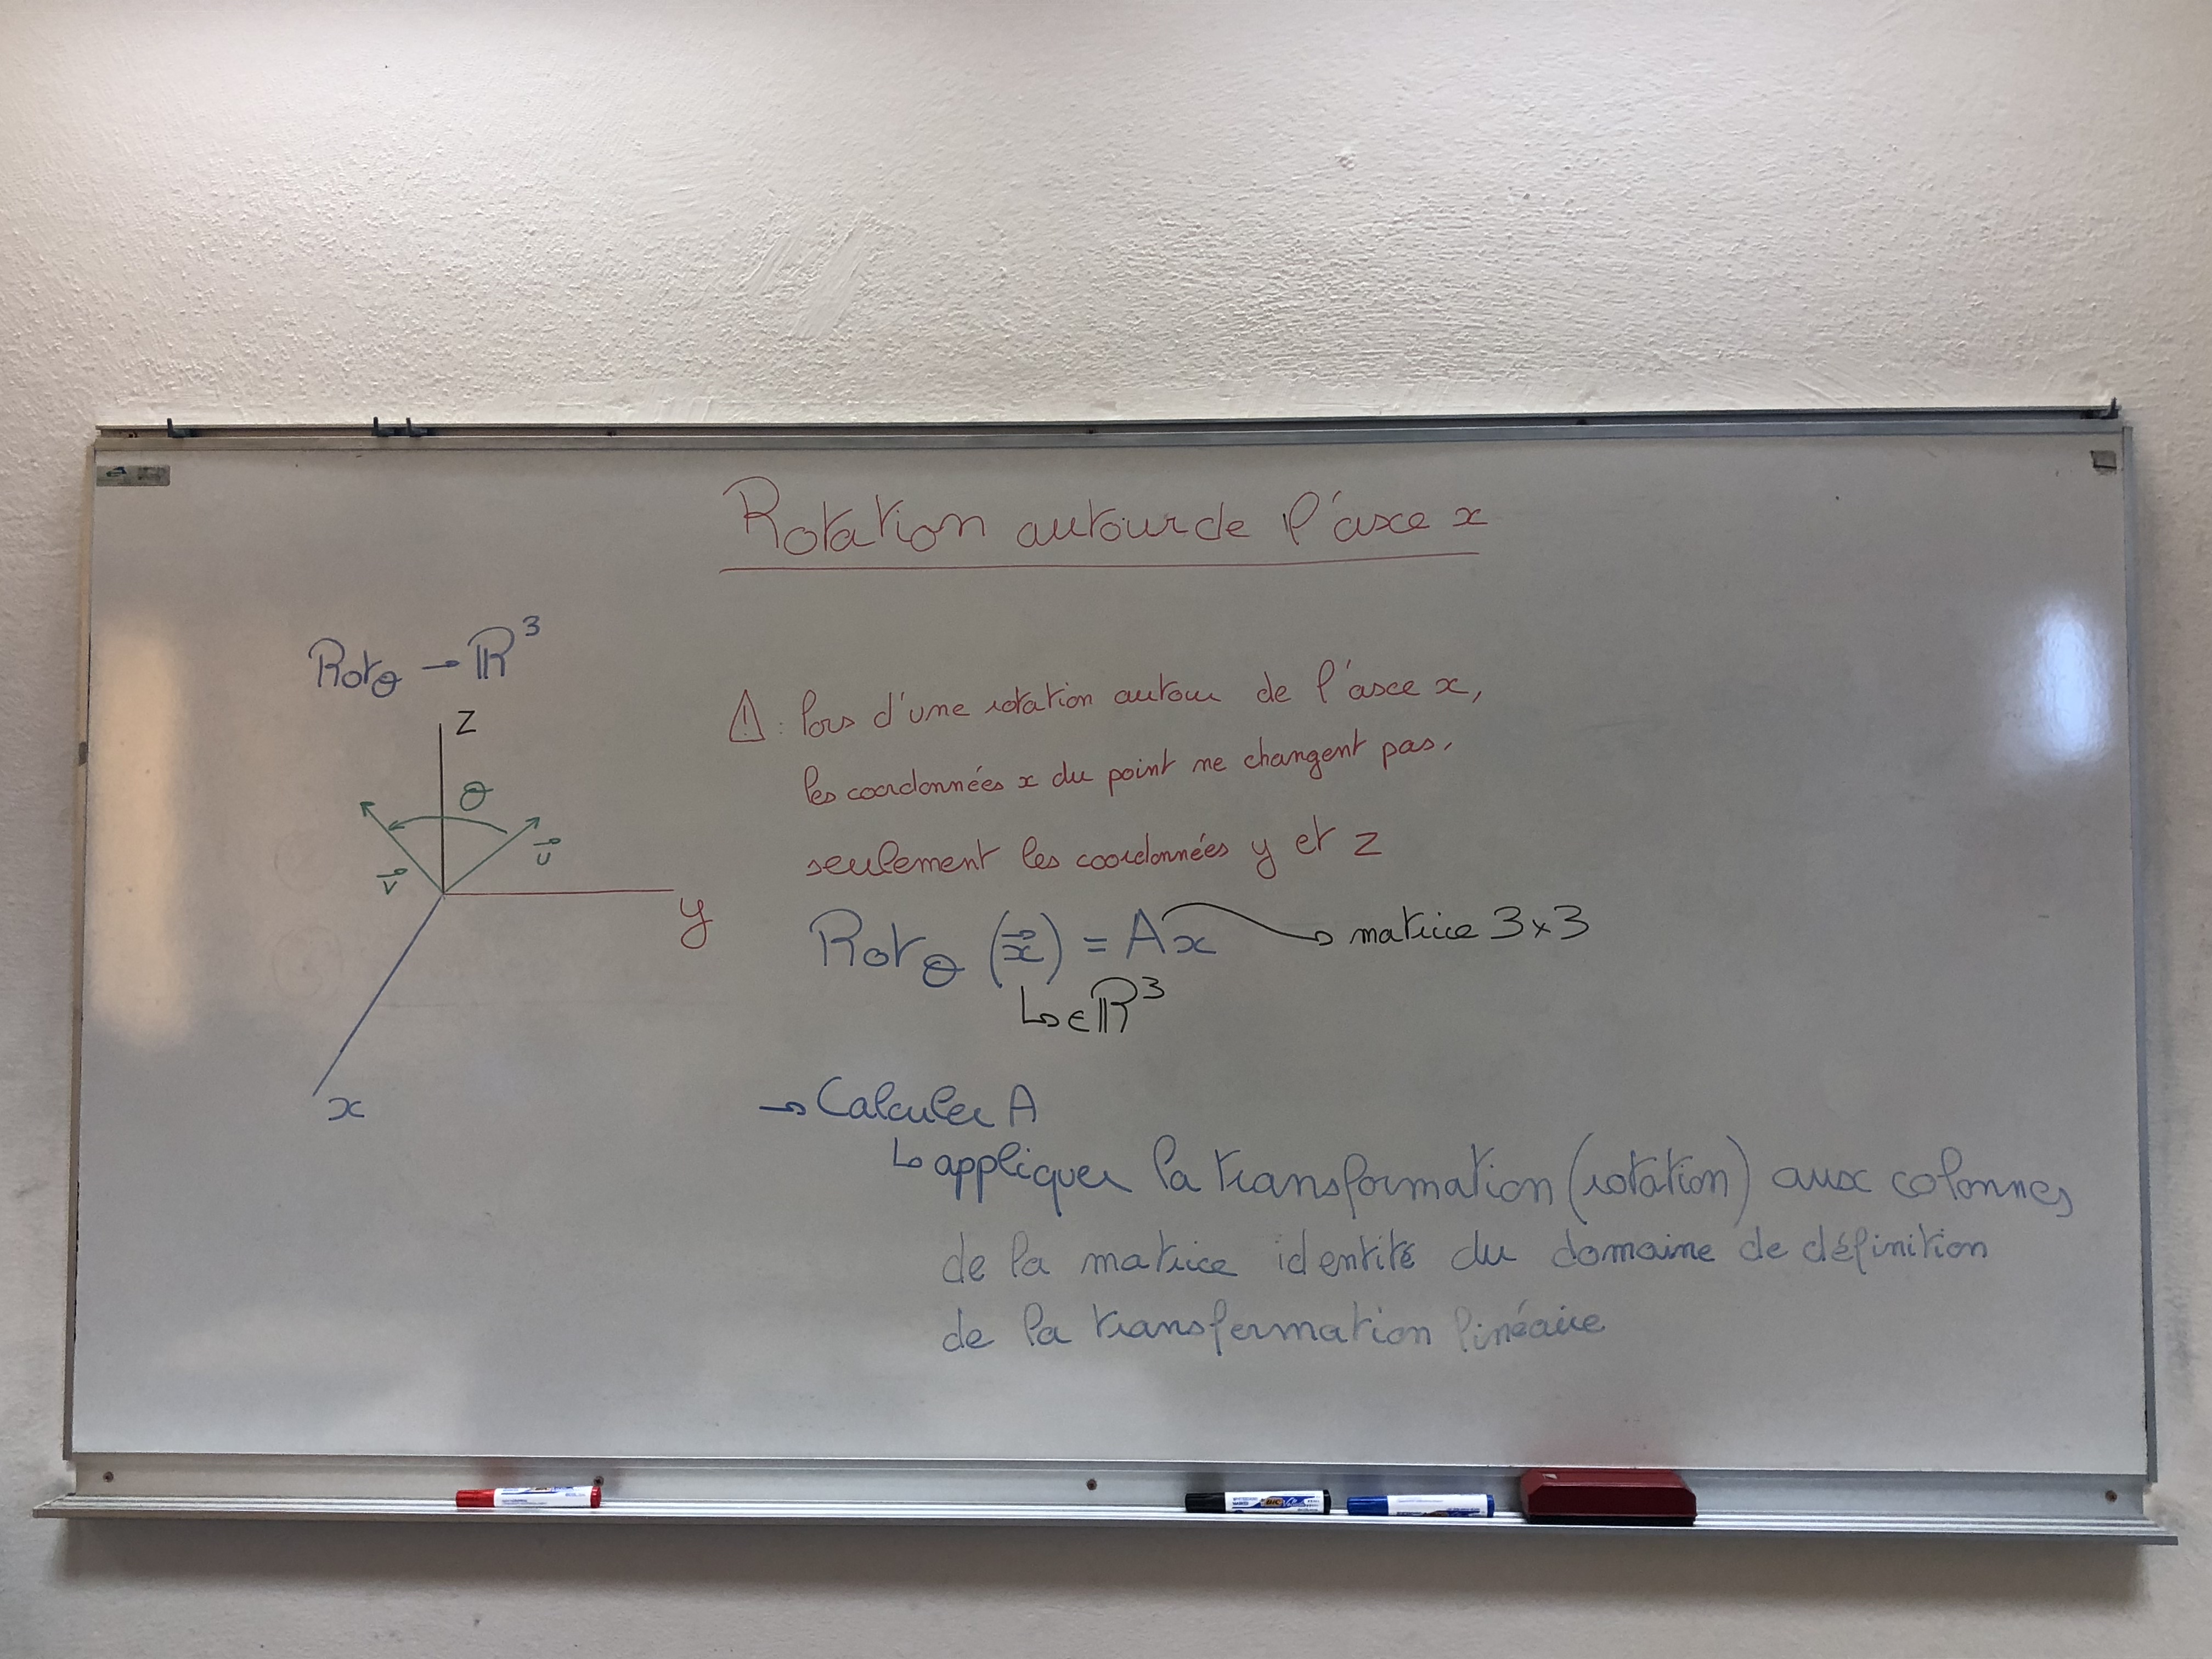 Rotation autour de l'axe x
Rotθ → ℝ³
z
θ
u⃗
v⃗
y
x
⚠ : lors d'une rotation autour de l'axe x,
les coordonnées x du point ne changent pas,
seulement les coordonnées y et z
Rotθ (x⃗) = Ax → matrice 3x3
↳ ∈ ℝ³
→ Calculer A
↳ appliquer la transformation (rotation) aux colonnes
de la matrice identité du domaine de définition
de la transformation linéaire
BIC